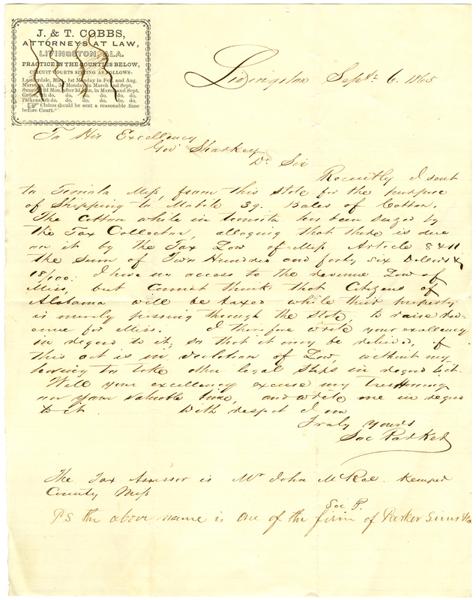 J. & T. COBBS,
ATTORNEYS AT LAW,
LIVINGSTON, ALA.
PRACTICE IN THE COUNTIES BELOW,
CIRCUIT COURTS SITTING AS FOLLOWS:
Claims should be sent a reasonable time
before Court.
Livingston Sept. 6. 1865
To His Excellency
Gov Sharkey
Dr Sir
Recently I sent
to Miss, from this State for the purpose
of Shipping to Mobile 39. Bales of Cotton.
The Cotton while in transit has been seized by
the Tax Collector, alleging that there is due
on it by the Tax Law of Miss Article
the sum of Two Hundred and forty six Dollars &
18/100: I have no access to the revenue Law of
Miss, but cannot think that Citizens of
Alabama will be taxed while their property
is merely passing through the State, to raise
for Miss. I therefore write your excellency
in regard to it, so that it may be released, if
this act is in violation of Law, without my
having to take other legal Steps in regard to it.
Will your excellency excuse my
on your valuable time, and write me in regard
to it. With respect I am
Truly yours
Soc Parker
The Tax Assessor is Mr John McRae. Kemper
County Miss
Soc P.
PS the above name is one of the firm of Parker